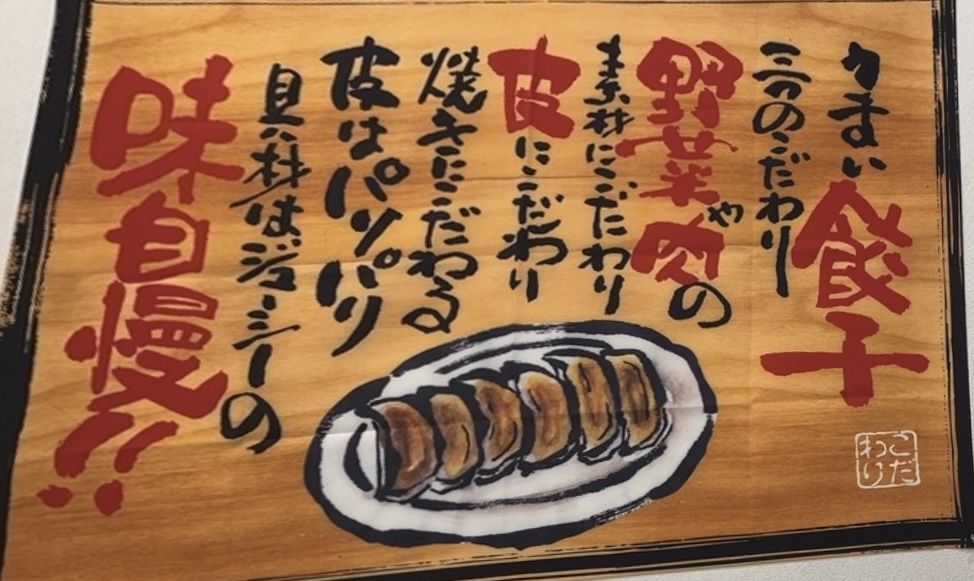 うまい餃子
三つのこだわり
野菜や肉の
素材にこだわり
皮にこだわり
焼きにこだわる
皮はパリパリ
具材はジューシーの
味自慢!!
こだ
わり